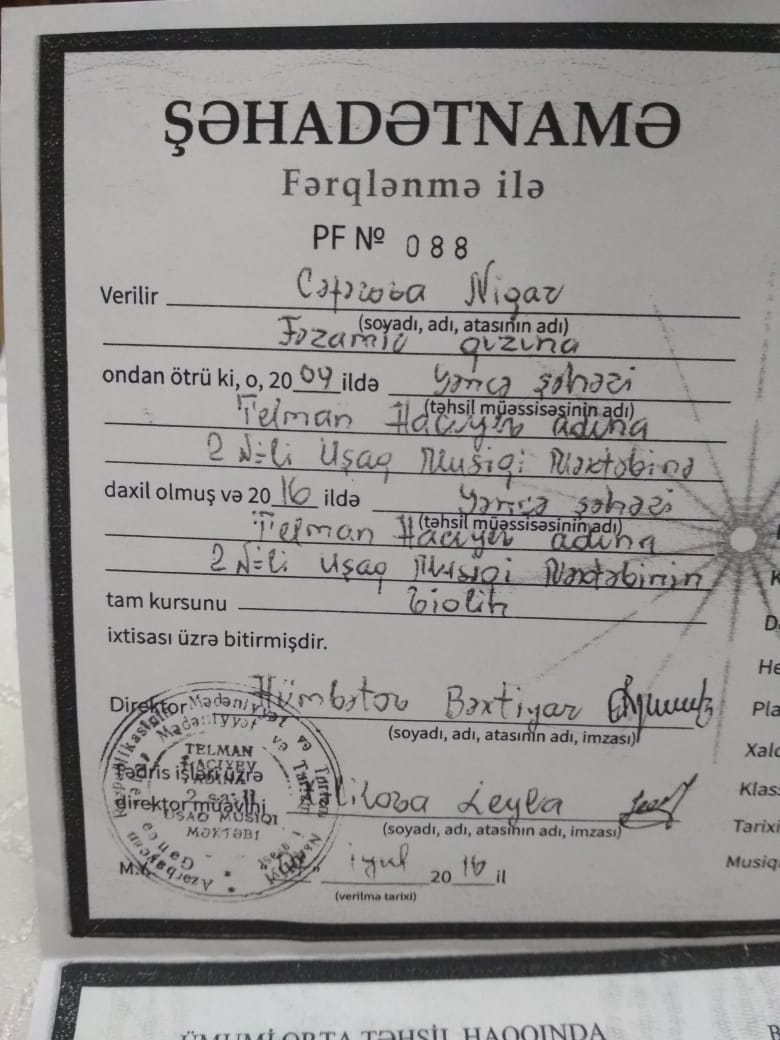 ŞƏHADƏTNAMƏ
Fərqlənmə ilə
PF № 088
Verilir Cəfərova Nigar
(soyadı, adı, atasının adı)
qızına
ondan ötrü ki, o, 2009 ildə Gəncə şəhəri
(təhsil müəssisəsinin adı)
Telman Hacıyev adına
2 №-li Uşaq Musiqi Məktəbinə
daxil olmuş və 2016 ildə Gəncə şəhəri
(təhsil müəssisəsinin adı)
Telman Hacıyev adına
2 №-li Uşaq Musiqi Məktəbinin
tam kursunu violin
ixtisası üzrə bitirmişdir.
Direktor Hümbətov Bəxtiyar
(soyadı, adı, atasının adı, imzası)
Tədris işləri üzrə
direktor müavini Leyla
(soyadı, adı, atasının adı, imzası)
M.Y. iyul 2016 il
(verilmə tarixi)
TELMAN
HACIYEV
ADINA
2 saylı
UŞAQ MUSIQI
MƏKTƏBI
He
Pla
Xalq
Klas
Tarixi
Musiqi
ÜMUMİ ORTA TƏHSİL HAQQINDA